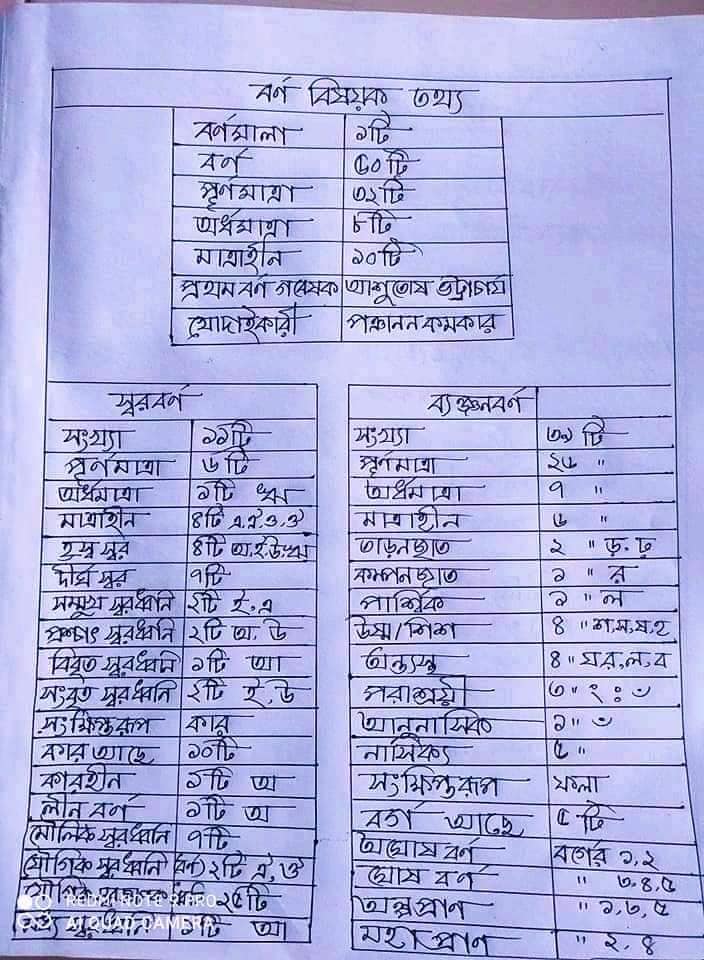 বর্ণ বিষয়ক তথ্য
বর্ণমালা ১টি
বর্ণ ৫০টি
পূর্ণমাত্রা ৩২টি
অর্ধমাত্রা ৮টি
মাত্রাহীন ১০টি
প্রথম বর্ণ গবেষক আশুতোষ ভট্টাচার্য
খোদাইকারী পঞ্চানন কর্মকার
স্বরবর্ণ
সংখ্যা ১১টি
পূর্ণমাত্রা ৬টি
অর্ধমাত্রা ১টি ঋ
মাত্রাহীন ৪টি এ,ঐ,ও,ঔ
হ্রস্ব স্বর ৪টি অ,ই,উ,ঋ
দীর্ঘ স্বর ৭টি
সম্মুখ স্বরধ্বনি ২টি ই,এ
পশ্চাৎ স্বরধ্বনি ২টি অ, উ
বিবৃত স্বরধ্বনি ১টি আ
সংবৃত স্বরধ্বনি ২টি ই,উ
সংক্ষিপ্তরূপ কার
কার আছে ১০টি
কারহীন ১টি অ
লীন বর্ণ ১টি অ
মৌলিক স্বরধ্বনি ৭টি
যৌগিক স্বরধ্বনি (বর্ণ) ২টি ঐ,ঔ
যৌগিক ২৫টি
১টি আ
ব্যঞ্জনবর্ণ
সংখ্যা ৩৯ টি
পূর্ণমাত্রা ২৬ "
অর্ধমাত্রা ৭ "
মাত্রাহীন ৬ "
তাড়নজাত ২ " ড়,ঢ়
কম্পনজাত ১ " র
পার্শ্বিক ১ " ল
উষ্ম/শিশ ৪ " শ,স,ষ,হ
অন্ত্যস্থ ৪ " য,র,ল,ব
পরাশ্রয়ী ৩ " ং ঃ ঁ
আনুনাসিক ১ " ঁ
নাসিক্য ৫ "
সংক্ষিপ্তরূপ ফলা
বর্গ আছে ৫ টি
অঘোষ বর্ণ বর্গের ১,২
ঘোষ বর্ণ " ৩,৪,৫
অল্পপ্রাণ " ১,৩,৫
মহাপ্রাণ " ২,৪
REDMI NOTE 9 PRO
AI QUAD CAMERA